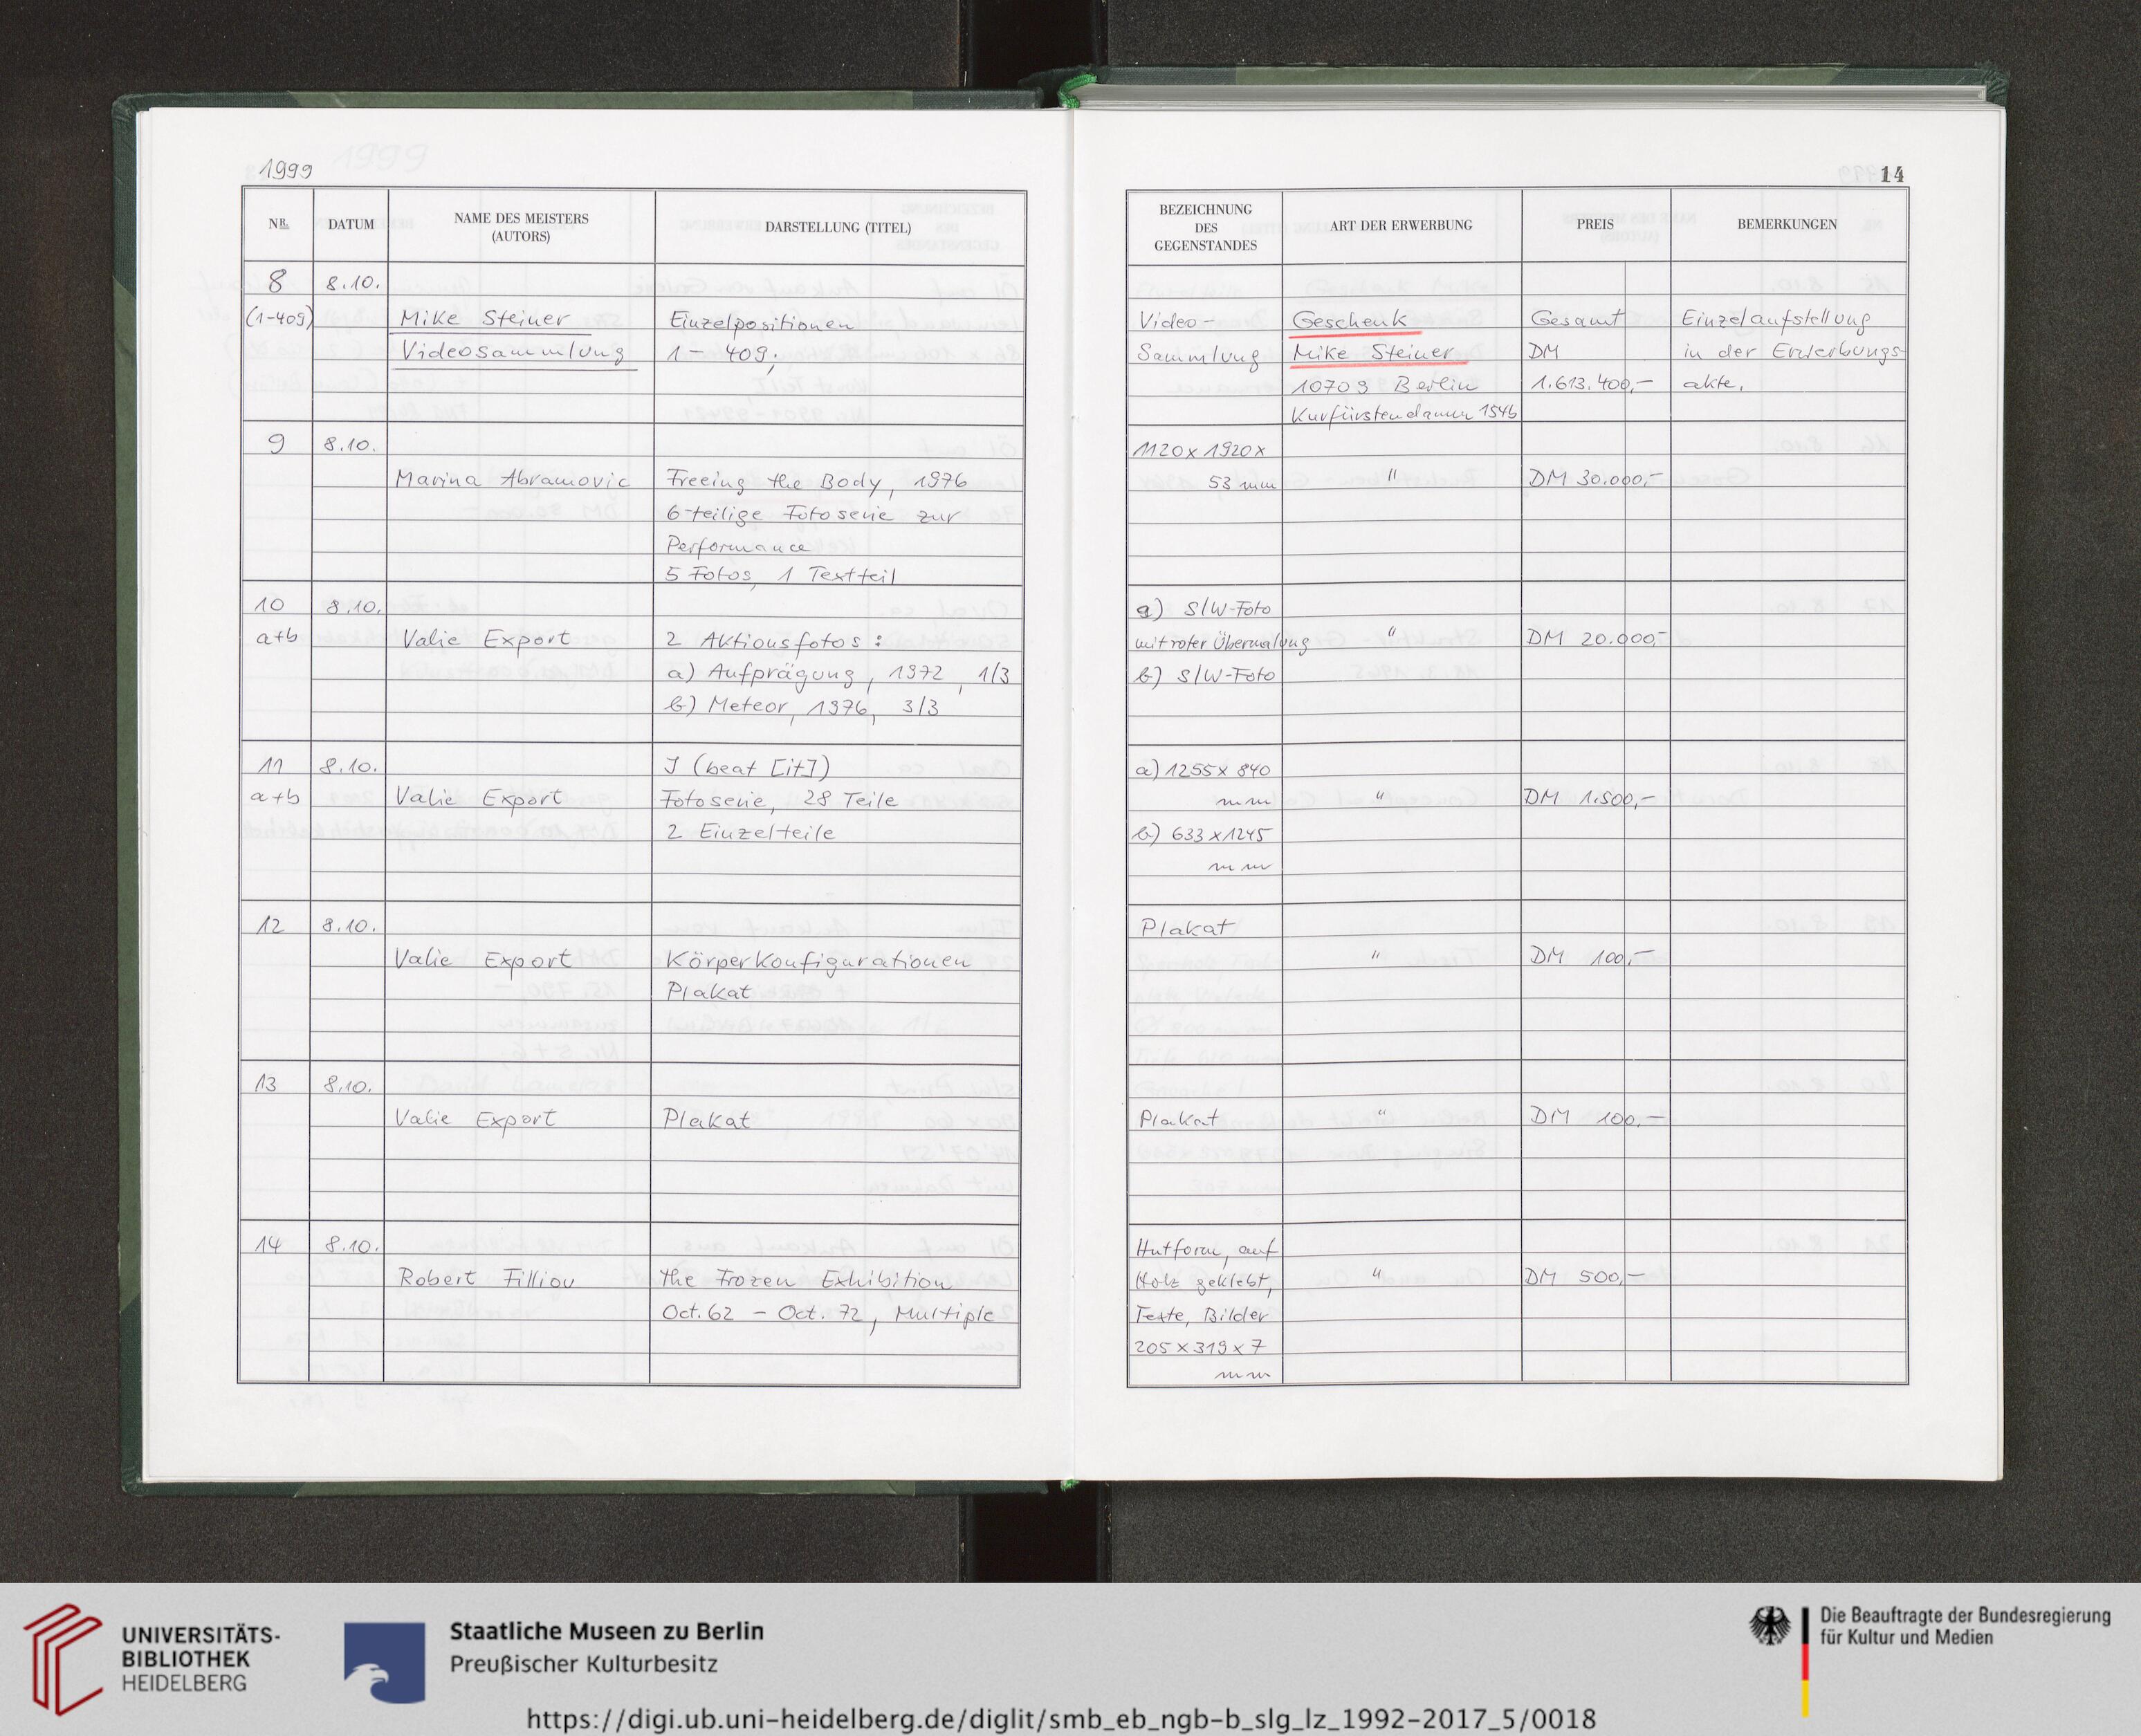 1999
NR.
DATUM
NAME DES MEISTERS
(AUTORS)
DARSTELLUNG (TITEL)
8
8.10.
(1-409)
Mike Steiner
Einzelpositionen
Videosammlung
1 - 409;
9
8.10.
Marina Abramovic
Freeing the Body, 1976
6-teilige Fotoserie zur
Performance
5 Fotos, 1 Textteil
10
8.10.
a+b
Valie Export
2 Aktionsfotos:
a) Aufprägung, 1972, 1/3
b) Meteor, 1976, 3/3
11
8.10.
I (beat [it])
a+b
Valie Export
Fotoserie, 28 Teile
2 Einzelteile
12
8.10.
Valie Export
Körperkonfigurationen
Plakat
13
8.10.
Valie Export
Plakat
14
8.10.
Robert Filliou
the Frozen Exhibition
Oct. 62 - Oct. 72, Multiple
14
BEZEICHNUNG
DES
GEGENSTANDES
ART DER ERWERBUNG
PREIS
BEMERKUNGEN
Video-
Geschenk
Gesamt
Einzelaufstellung
Sammlung
Mike Steiner
DM
in der Erwerbungs-
10709 Berlin
1.613.400,-
akte.
Kurfürstendamm 154b
1120 x 1920 x
53 mm
"
DM 30.000,-
a) S/W-Foto
mit roter Übermalung
"
DM 20.000,-
b) S/W-Foto
a) 1255 x 840
mm
"
DM 1.500,-
b) 633 x 1245
mm
Plakat
"
DM 100,-
Plakat
"
DM 100,-
Hutform, auf
Holz geklebt,
"
DM 500,-
Texte, Bilder
205 x 319 x 7
mm
UNIVERSITÄTS-
BIBLIOTHEK
HEIDELBERG
Staatliche Museen zu Berlin
Preußischer Kulturbesitz
Die Beauftragte der Bundesregierung
für Kultur und Medien
https://digi.ub.uni-heidelberg.de/diglit/smb_eb_ngb-b_slg_lz_1992-2017_5/0018